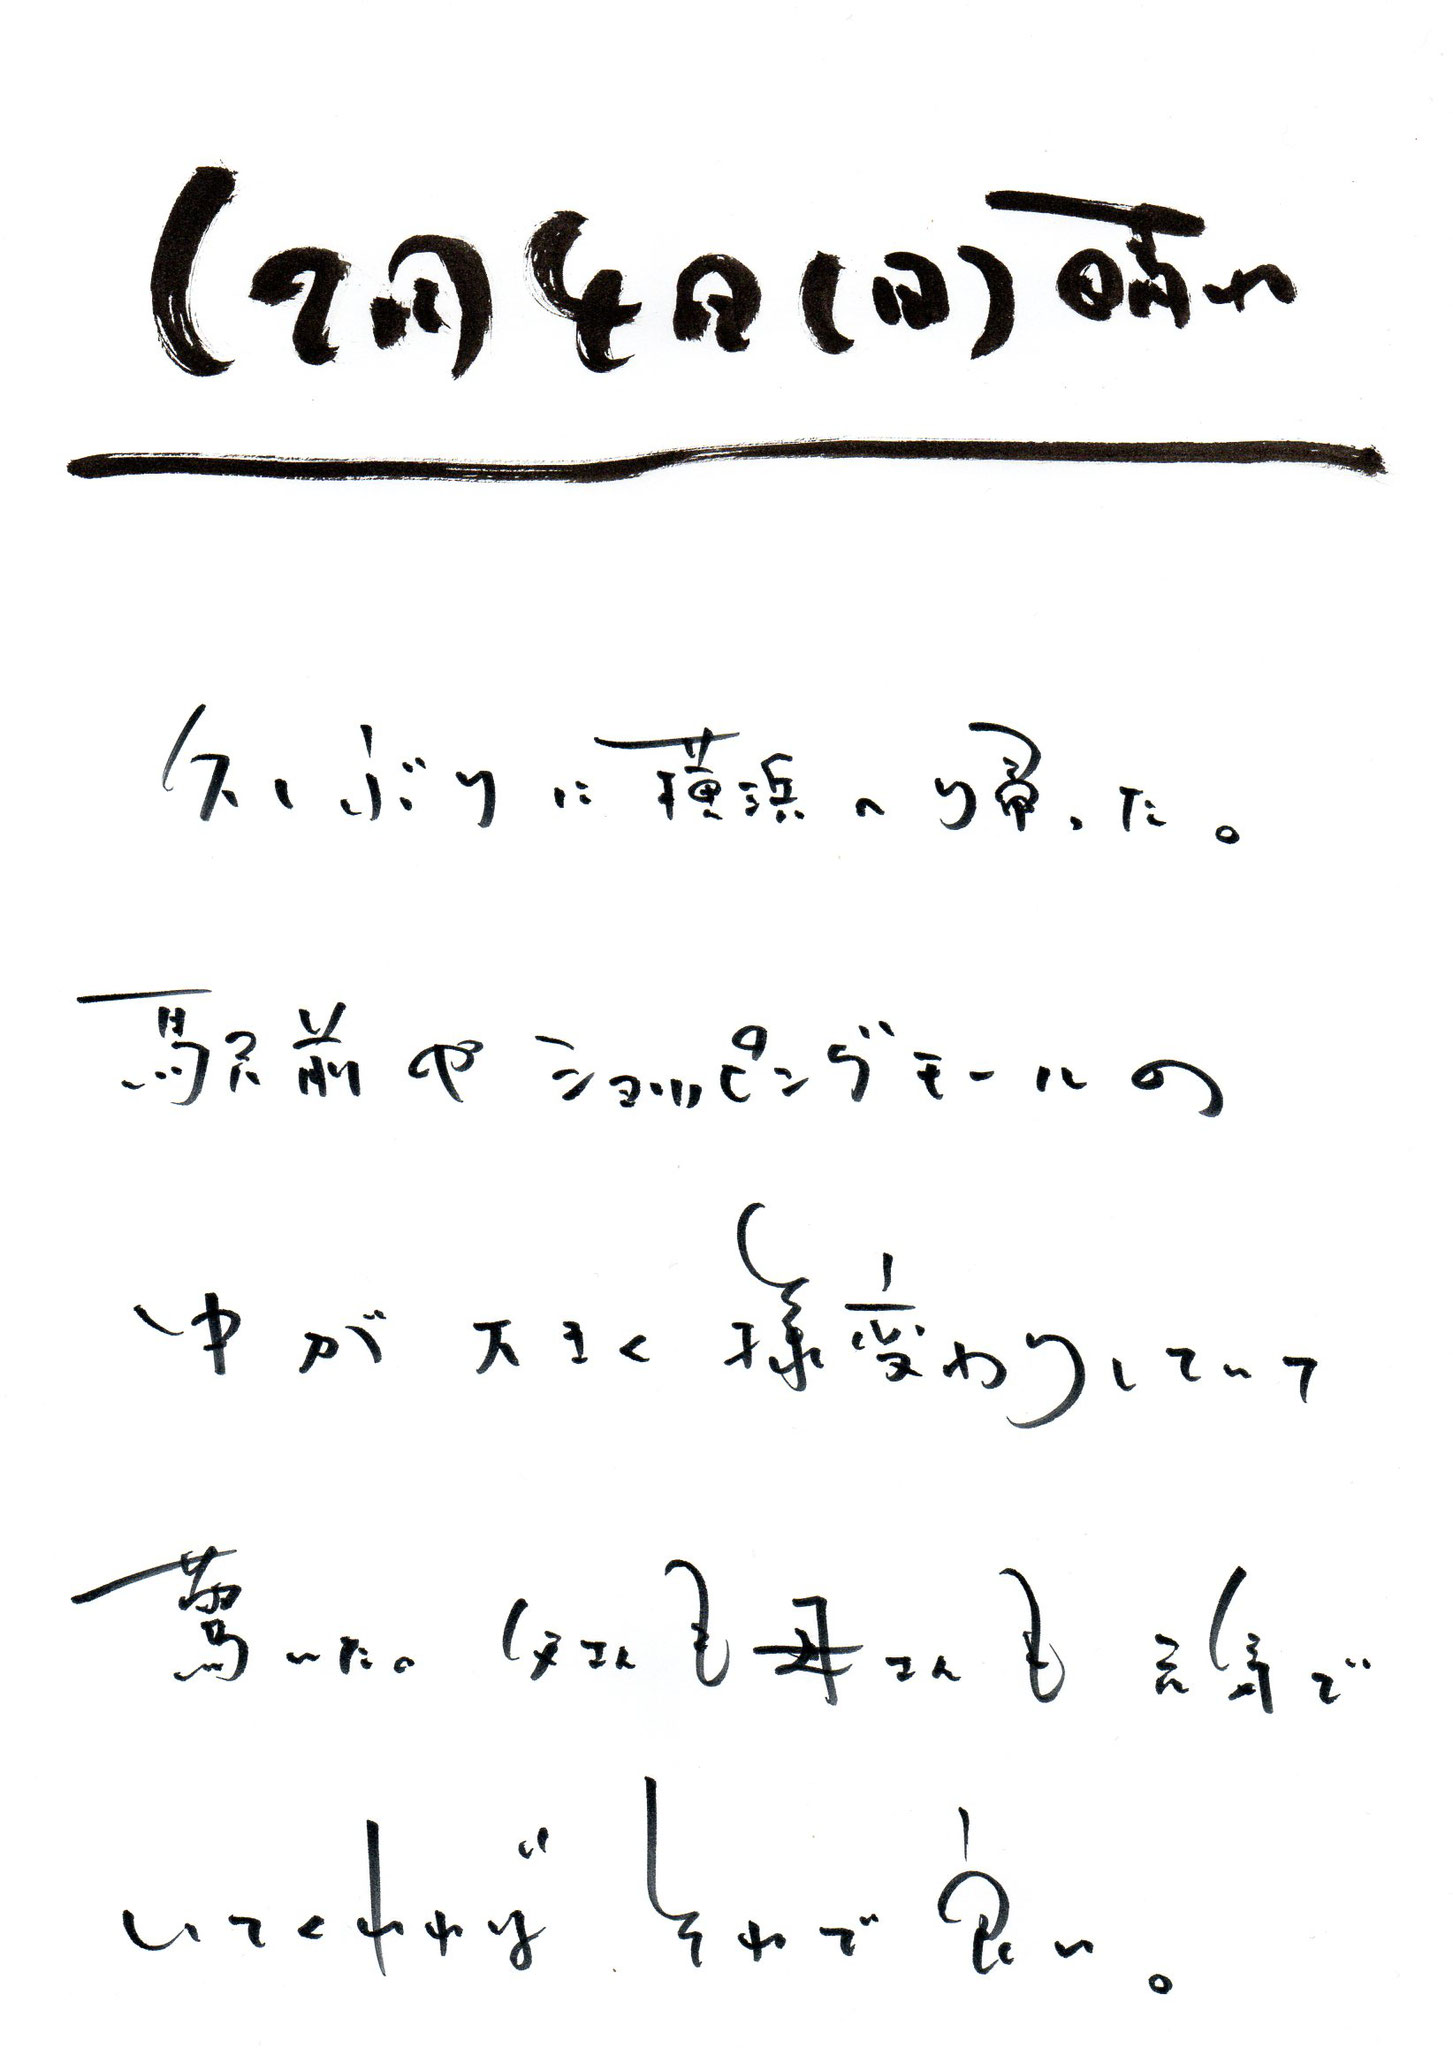 月4日(日)晴れ
久しぶりに横浜へ帰った。
駅前やショッピングモールの
中が大きく様変わりしていて
驚いた。父さんも母さんも元気で
いてくれればそれで良い。